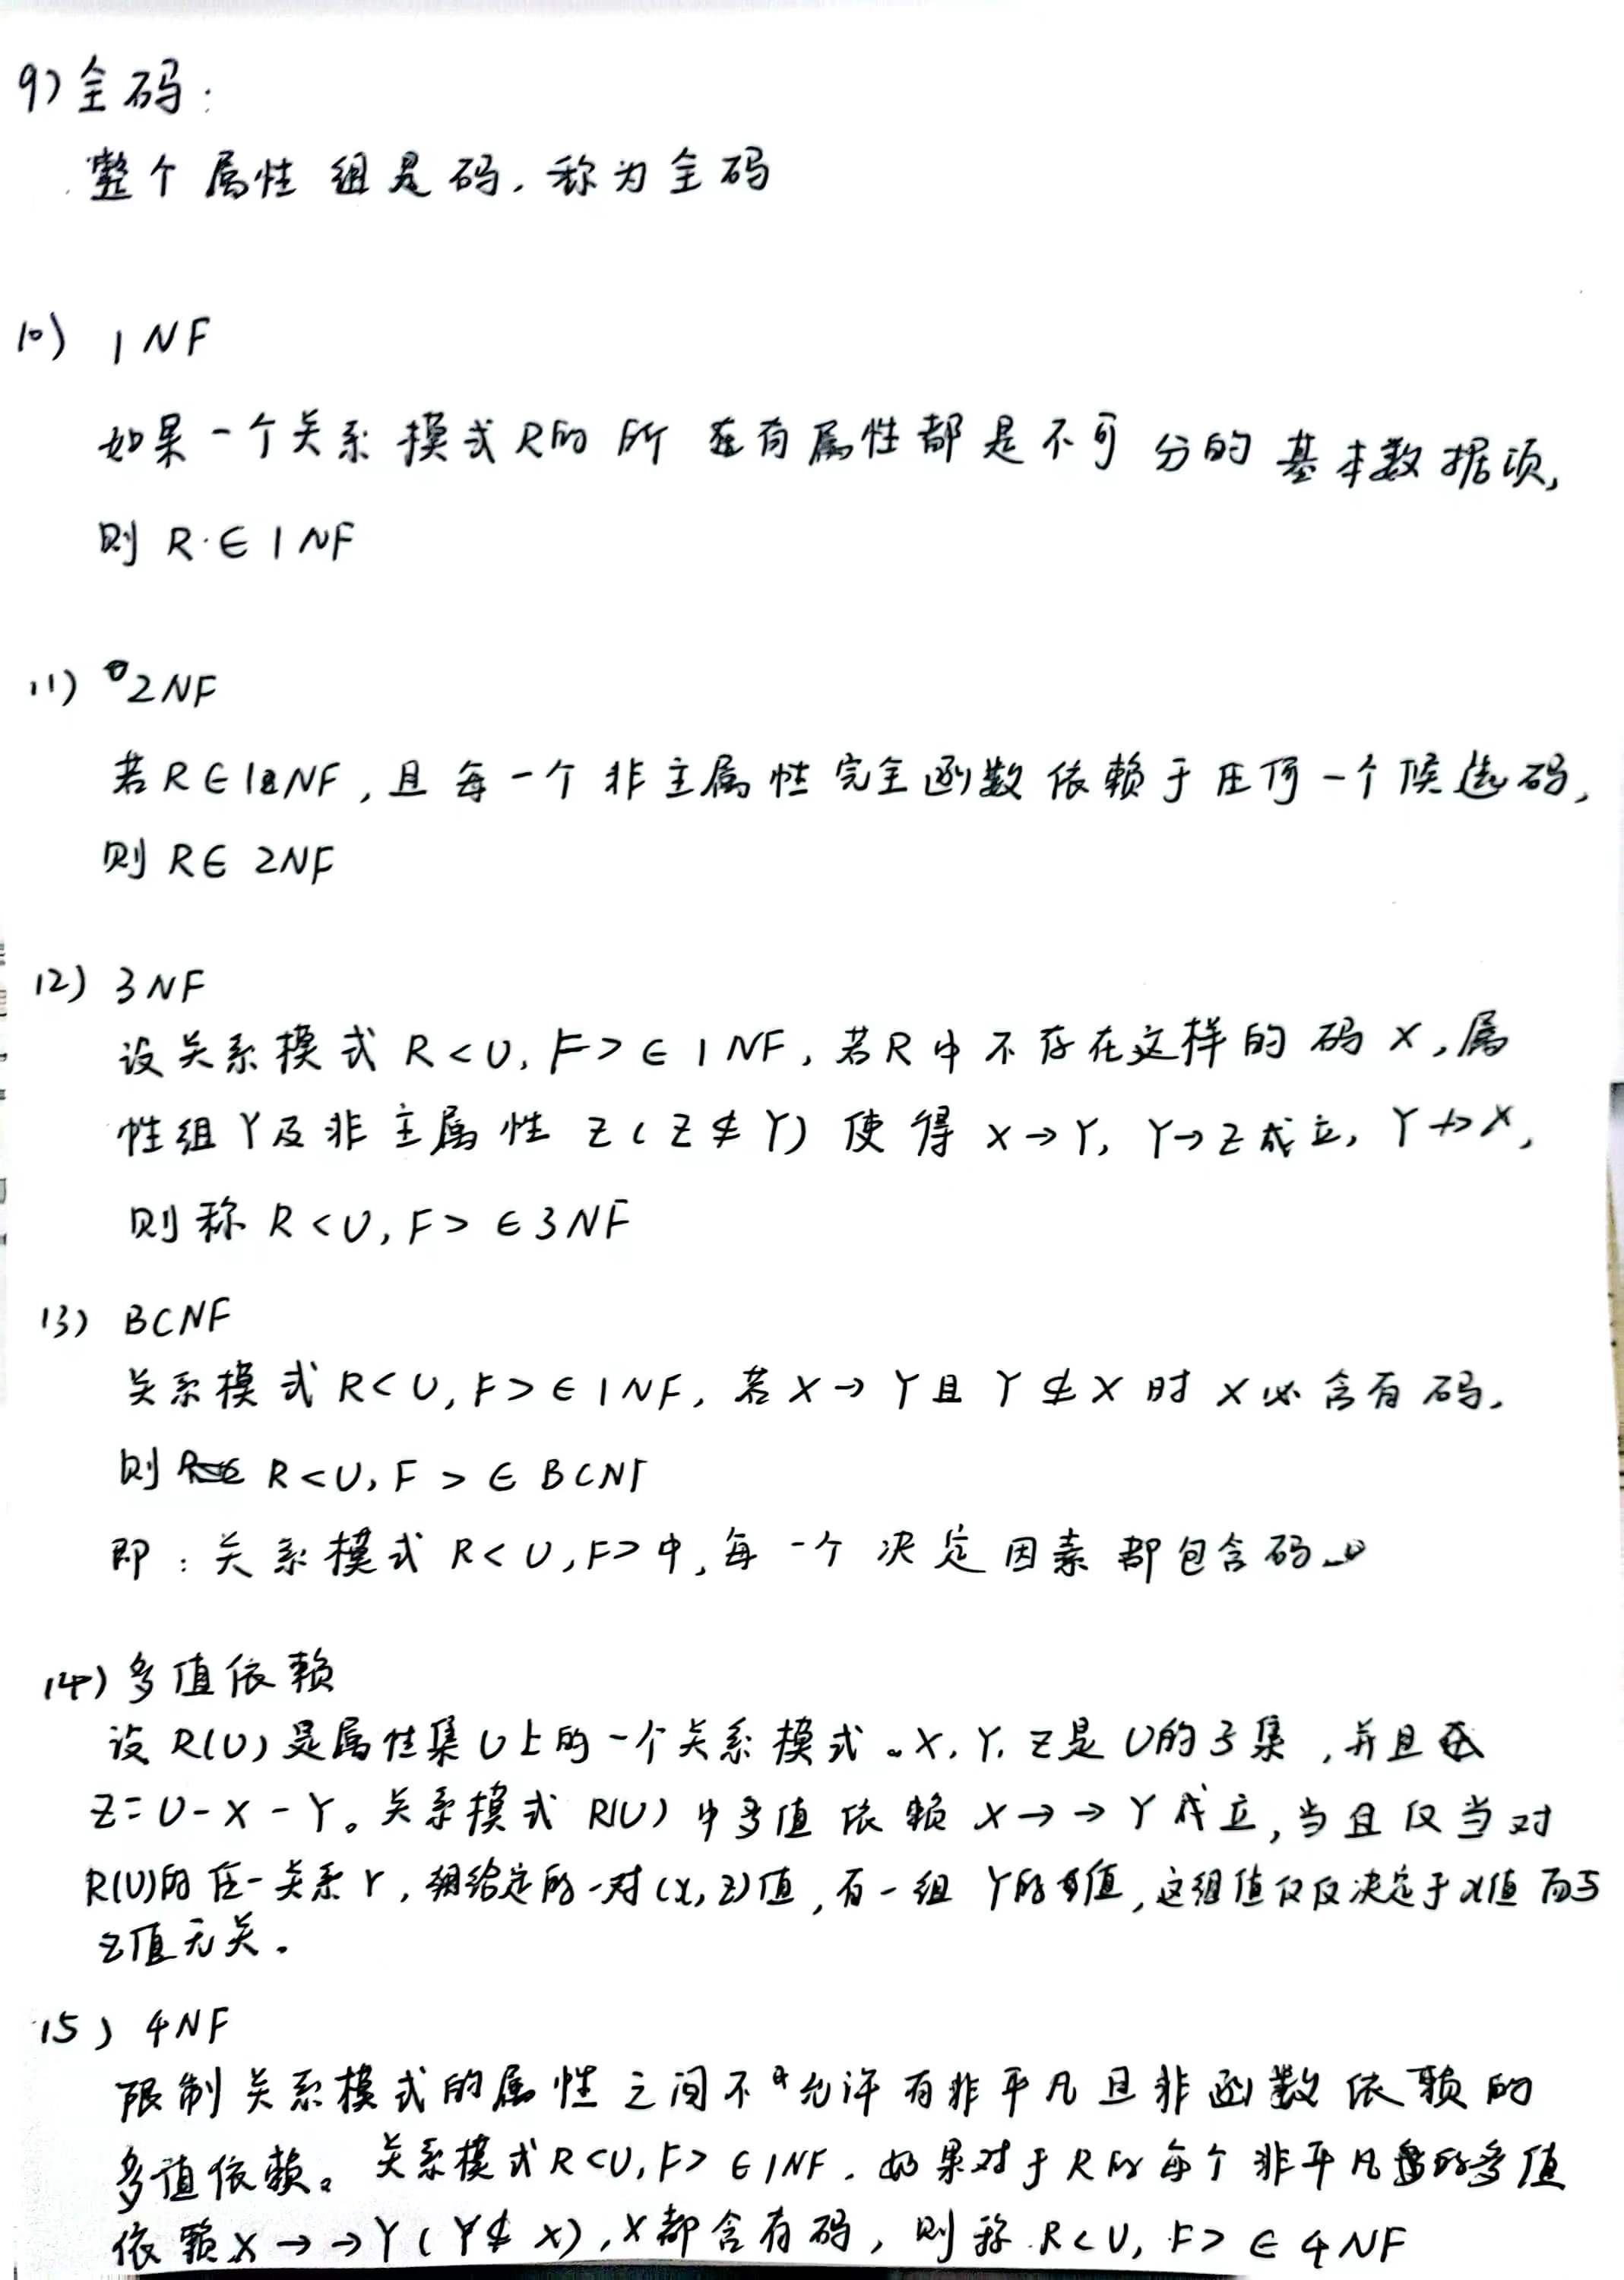 9) 全码:
整个属性组是码, 称为全码
10) 1NF
如果一个关系模式R的所有属性都是不可分的基本数据项,
则 R∈1NF
11) 2NF
若R∈1NF, 且每一个非主属性完全函数依赖于任何一个候选码,
则 R∈ 2NF
12) 3NF
设关系模式 R<U, F>∈1NF, 若R中不存在这样的码X, 属
性组Y及非主属性 Z(Z⊈Y) 使得 X→Y, Y→Z成立, Y↛X,
则称 R<U, F> ∈3NF
13) BCNF
关系模式R<U, F>∈1NF, 若X→Y且Y⊈X时X必含有码,
则 R<U, F>∈ BCNF
即: 关系模式 R<U, F>中, 每一个决定因素都包含码。
14) 多值依赖
设 R(U) 是属性集U上的一个关系模式。X, Y, Z是U的子集, 并且
Z=U-X-Y。关系模式 R(U) 中多值依赖 X→→Y成立, 当且仅当对
R(U)的任一关系r, 给定的一对(x, z)值, 有一组Y的值, 这组值仅仅决定于x值而与
z值无关.
15) 4NF
限制关系模式的属性之间不允许有非平凡且非函数依赖的
多值依赖。关系模式R<U, F>∈1NF. 如果对于R的每个非平凡的多值
依赖X→→Y(Y⊈X), X都含有码, 则称 R<U, F>∈4NF